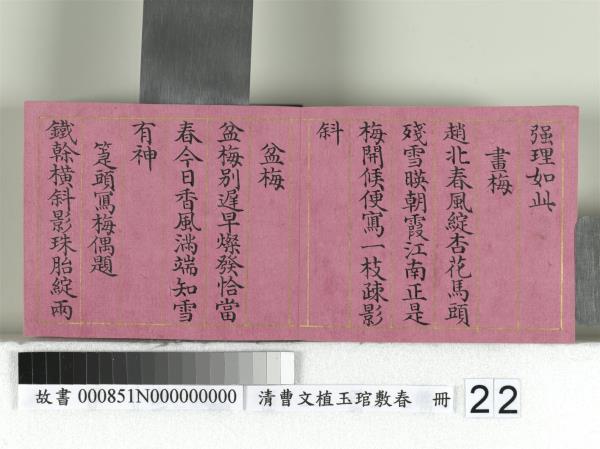 强理如此
書梅
趙北春風綻杏花馬頭
殘雪暎朝霞江南正是
梅開候便寫一枝疎影
斜
盆梅
盆梅別遲早燦發恰當
春今日香風滿端知雪
有神
筆頭寫梅偶題
鐵榦橫斜影珠胎綻兩
故書 000851N000000000 清曹文植玉琯敷春 冊 22